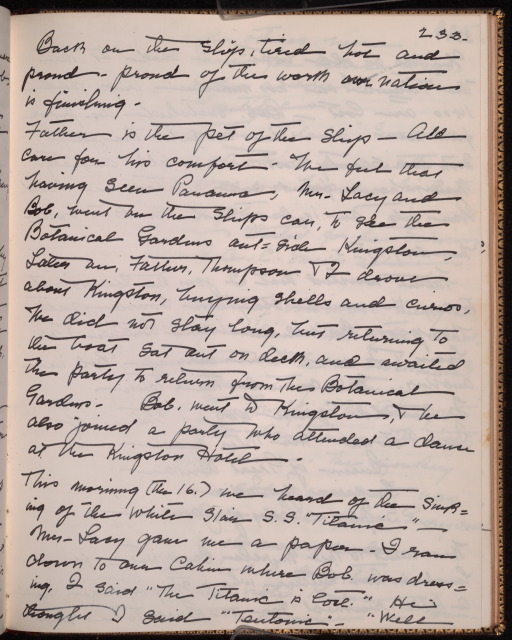 233.
Back on the ship, tired hot and
proud - proud of the work our nation
is finishing.
Father is the pet of the ship - All
care for his comfort. We felt that
having seen Panama, Mrs. Lacy and
Bob, went on the ships car, to see the
Botanical Gardens out=side Kingston,
Later on, Father, Thompson & I drove
about Kingston, buying shells and curios.
We did not stay long, but returning to
the boat sat out on deck, and awaited
the party to return from the Botanical
Gardens - Bob. went to Kingston, & he
also joined a party who attended a dance
at the Kingston Hotel -
This morning (the 16.) we heard of the Sink=
ing of the White Star S.S. "Titanic" -
Mrs- Lacy gave me a paper - I ran
down to our Cabin where Bob. was dress=
ing, I said "The Titanic is lost." He
thought I said "Teutonic" - "Well